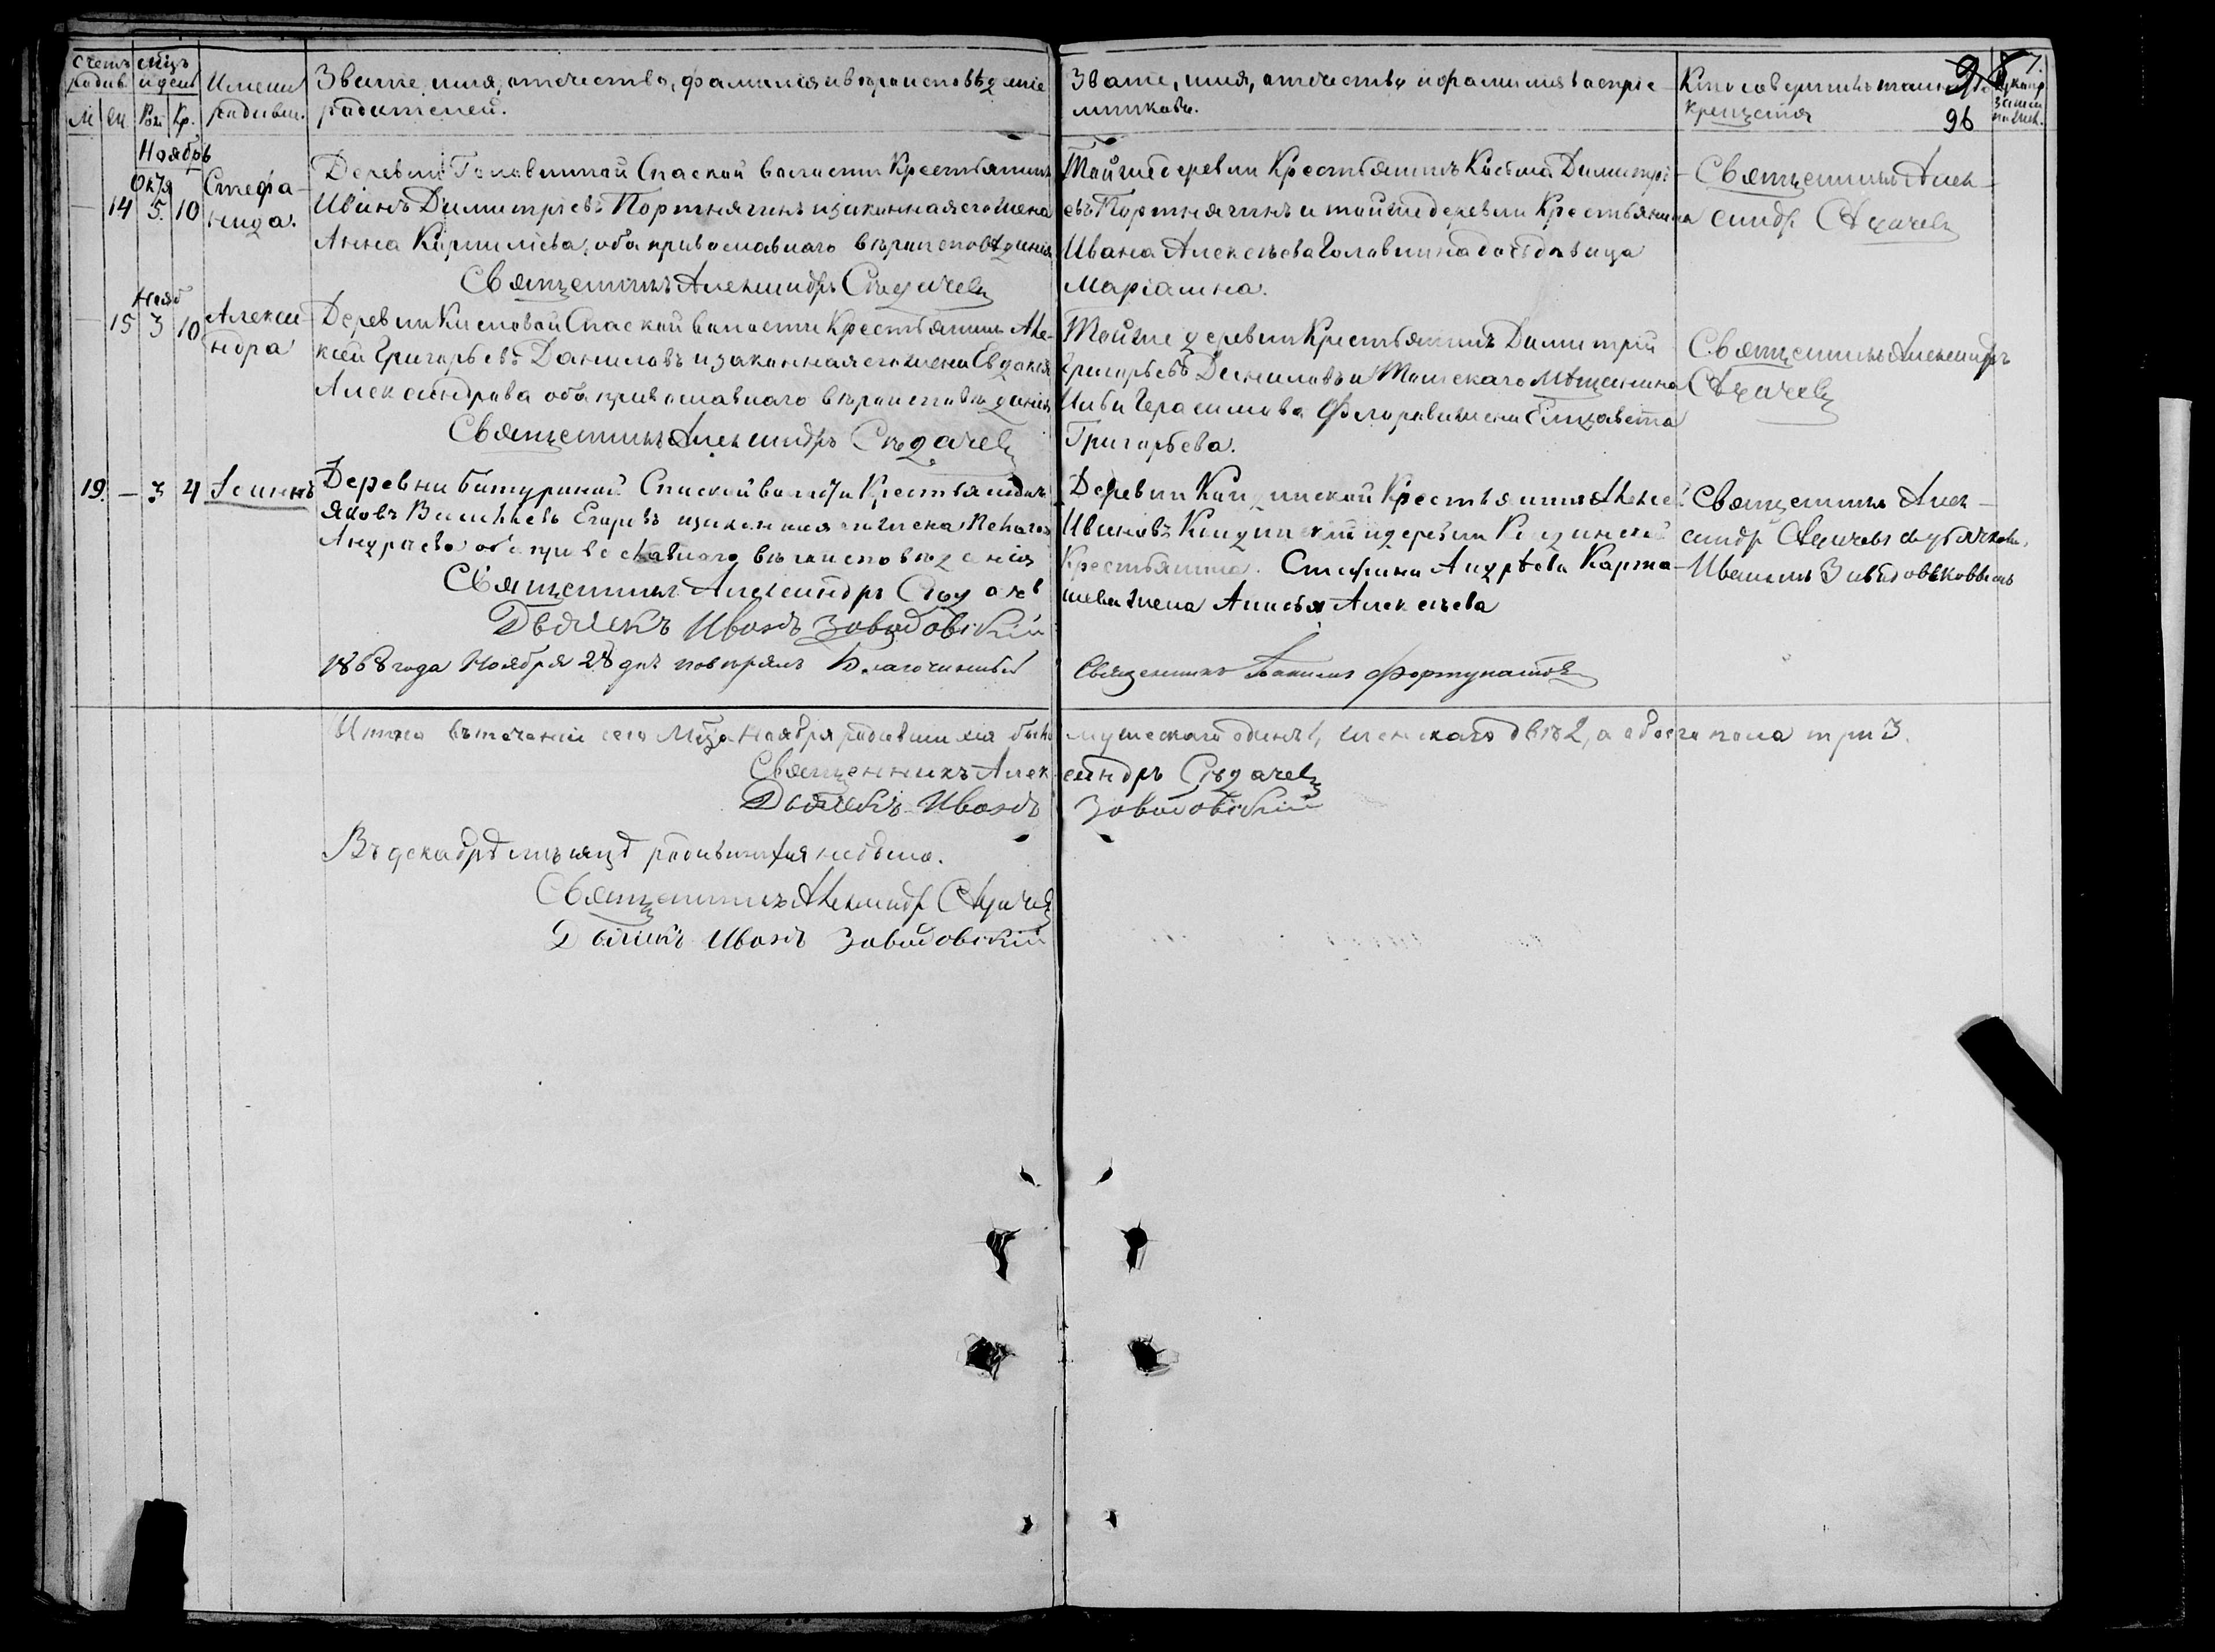 Счетъ родив.
мцъ и день
Имена родивш.
Званіе, имя, отечество, фамилія и вѣроисповѣданіе
родителей.
Званіе, имя, отечество и фамилія воспріе-
мниковъ.
Кто совершилъ таинство
крещенія
96
М. Ж. Рож. Кр.
Ноябрь
Окт
14 5. 10 Стефа-
нида.
Деревни Головиной Спаской волости Крестьянинъ
Иванъ Димитріевъ Портнягинъ и законная его жена
Анна Корнилiева, оба православнаго вѣроисповѣданія
Священникъ Александръ Сѣдачевъ
Той же деревни Крестьянинъ Косьма Димитрі-
евъ Портнягинъ и той же деревни Крестьянина
Ивана Алексѣева Головина дочь дѣвица
Маріамна.
Священникъ Алек-
сандръ Сѣдачевъ
Нояб
15 3 10 Алекса-
ндра
Деревни Кисловой Спаской волости Крестьянинъ Але-
ксѣй Григорьевъ Даниловъ и законная его жена Евдокія
Александрова оба православнаго вѣроисповѣданія
Священникъ Александръ Сѣдачевъ
Той же деревни Крестьянинъ Димитрій
Григорьевъ Даниловъ и Томскаго Мѣщанина
Герасимова жена Елизавета
Григорьева.
Священникъ Александръ
Сѣдачевъ
19. — 3 4 Іоаннъ
Деревни Батуриной Спаской волости Крестьянинъ
Яковъ Васильевъ Егоровъ и законная его жена Пелагея
Андреева оба православнаго вѣроисповѣданія
Священникъ Александръ Сѣдачевъ
Дьячекъ Иванъ Заводовскій
Деревни Кандинской Крестьянинъ Алексѣй
Ивановъ Кандинскій и деревни Кандинской
Крестьянина Стефана Андрѣева Карта-
шева жена Анисья Алексѣева
Священникъ Алек-
сандръ Сѣдачевъ съ дьячкомъ
Иваномъ Заводовсковымъ
1868 года Ноября 28 дня повѣрялъ Благочинный
Священникъ Фортунатовъ
Итого въ теченіи сего Мца Ноября родившихся было
мужескаго одинъ 1, женскаго двѣ 2, а обоего пола три 3.
Священникъ Александръ Сѣдачевъ
Дьячекъ Иванъ Заводовскій
Въ декабрѣ мѣсяцѣ родившихся небыло.
Священникъ Александръ Сѣдачевъ
Дьячекъ Иванъ Заводовскій